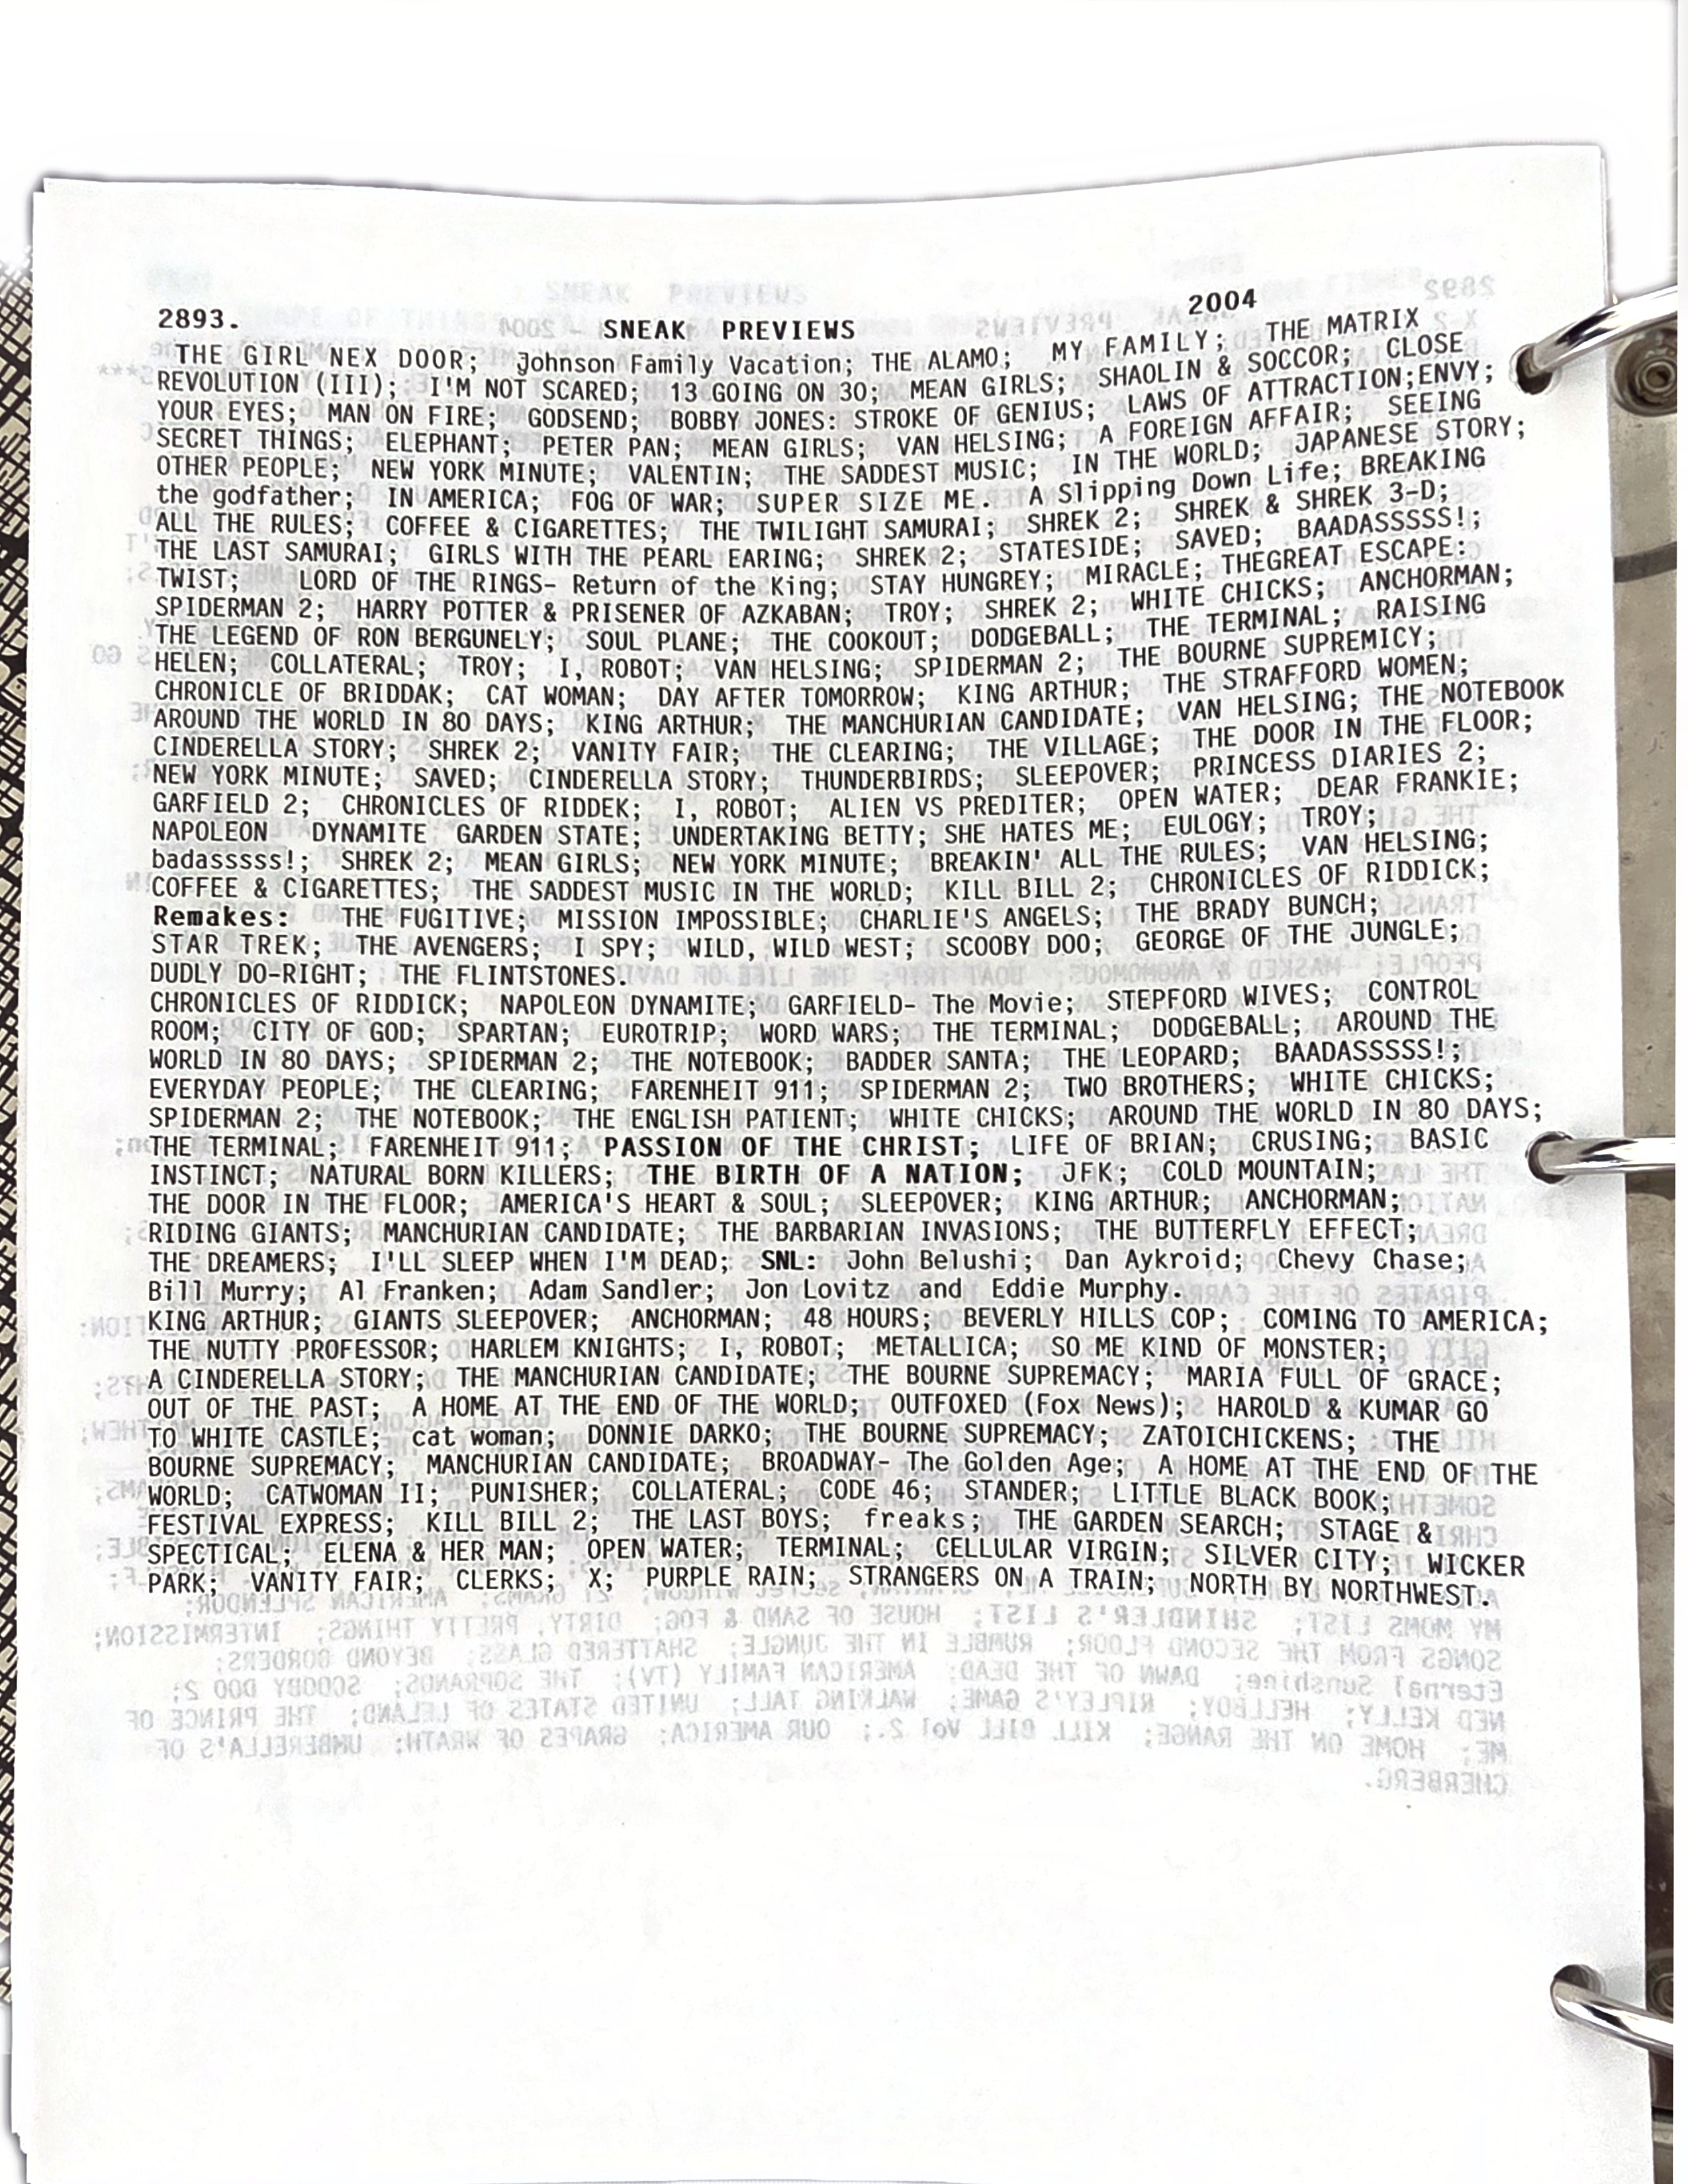 2893. SNEAK PREVIEWS 2004
THE GIRL NEX DOOR; Johnson Family Vacation; THE ALAMO; MY FAMILY; THE MATRIX
REVOLUTION (III); I'M NOT SCARED; 13 GOING ON 30; MEAN GIRLS; SHAOLIN & SOCCOR; CLOSE
YOUR EYES; MAN ON FIRE; GODSEND; BOBBY JONES: STROKE OF GENIUS; LAWS OF ATTRACTION;ENVY;
SECRET THINGS; ELEPHANT; PETER PAN; MEAN GIRLS; VAN HELSING; A FOREIGN AFFAIR; SEEING
OTHER PEOPLE; NEW YORK MINUTE; VALENTIN; THE SADDEST MUSIC; IN THE WORLD; JAPANESE STORY;
the godfather; IN AMERICA; FOG OF WAR; SUPER SIZE ME. A Slipping Down Life; BREAKING
ALL THE RULES; COFFEE & CIGARETTES; THE TWILIGHT SAMURAI; SHREK 2; SHREK & SHREK 3-D;
THE LAST SAMURAI; GIRLS WITH THE PEARL EARING; SHREK 2; STATESIDE; SAVED; BAADASSSSS!;
TWIST; LORD OF THE RINGS- Return of the King; STAY HUNGREY; MIRACLE; THEGREAT ESCAPE:
SPIDERMAN 2; HARRY POTTER & PRISENER OF AZKABAN; TROY; SHREK 2; WHITE CHICKS; ANCHORMAN;
THE LEGEND OF RON BERGUNELY; SOUL PLANE; THE COOKOUT; DODGEBALL; THE TERMINAL; RAISING
HELEN; COLLATERAL; TROY; I, ROBOT; VAN HELSING; SPIDERMAN 2; THE BOURNE SUPREMICY;
CHRONICLE OF BRIDDAK; CAT WOMAN; DAY AFTER TOMORROW; KING ARTHUR; THE STRAFFORD WOMEN;
AROUND THE WORLD IN 80 DAYS; KING ARTHUR; THE MANCHURIAN CANDIDATE; VAN HELSING; THE NOTEBOOK
CINDERELLA STORY; SHREK 2; VANITY FAIR; THE CLEARING; THE VILLAGE; THE DOOR IN THE FLOOR;
NEW YORK MINUTE; SAVED; CINDERELLA STORY; THUNDERBIRDS; SLEEPOVER; PRINCESS DIARIES 2;
GARFIELD 2; CHRONICLES OF RIDDEK; I, ROBOT; ALIEN VS PREDITER; OPEN WATER; DEAR FRANKIE;
NAPOLEON DYNAMITE GARDEN STATE; UNDERTAKING BETTY; SHE HATES ME; EULOGY; TROY;
badasssss!; SHREK 2; MEAN GIRLS; NEW YORK MINUTE; BREAKIN' ALL THE RULES; VAN HELSING;
COFFEE & CIGARETTES; THE SADDEST MUSIC IN THE WORLD; KILL BILL 2; CHRONICLES OF RIDDICK;
Remakes: THE FUGITIVE; MISSION IMPOSSIBLE; CHARLIE'S ANGELS; THE BRADY BUNCH;
STAR TREK; THE AVENGERS; I SPY; WILD, WILD WEST; SCOOBY DOO; GEORGE OF THE JUNGLE;
DUDLY DO-RIGHT; THE FLINTSTONES.
CHRONICLES OF RIDDICK; NAPOLEON DYNAMITE; GARFIELD- The Movie; STEPFORD WIVES; CONTROL
ROOM; CITY OF GOD; SPARTAN; EUROTRIP; WORD WARS; THE TERMINAL; DODGEBALL; AROUND THE
WORLD IN 80 DAYS; SPIDERMAN 2; THE NOTEBOOK; BADDER SANTA; THE LEOPARD; BAADASSSSS!;
EVERYDAY PEOPLE; THE CLEARING; FARENHEIT 911; SPIDERMAN 2; TWO BROTHERS; WHITE CHICKS;
SPIDERMAN 2; THE NOTEBOOK; THE ENGLISH PATIENT; WHITE CHICKS; AROUND THE WORLD IN 80 DAYS;
THE TERMINAL; FARENHEIT 911; PASSION OF THE CHRIST; LIFE OF BRIAN; CRUSING; BASIC
INSTINCT; NATURAL BORN KILLERS; THE BIRTH OF A NATION; JFK; COLD MOUNTAIN;
THE DOOR IN THE FLOOR; AMERICA'S HEART & SOUL; SLEEPOVER; KING ARTHUR; ANCHORMAN;
RIDING GIANTS; MANCHURIAN CANDIDATE; THE BARBARIAN INVASIONS; THE BUTTERFLY EFFECT;
THE DREAMERS; I'LL SLEEP WHEN I'M DEAD; SNL: John Belushi; Dan Aykroid; Chevy Chase;
Bill Murry; Al Franken; Adam Sandler; Jon Lovitz and Eddie Murphy.
KING ARTHUR; GIANTS SLEEPOVER; ANCHORMAN; 48 HOURS; BEVERLY HILLS COP; COMING TO AMERICA;
THE NUTTY PROFESSOR; HARLEM KNIGHTS; I, ROBOT; METALLICA; SO ME KIND OF MONSTER;
A CINDERELLA STORY; THE MANCHURIAN CANDIDATE; THE BOURNE SUPREMACY; MARIA FULL OF GRACE;
OUT OF THE PAST; A HOME AT THE END OF THE WORLD; OUTFOXED (Fox News); HAROLD & KUMAR GO
TO WHITE CASTLE; cat woman; DONNIE DARKO; THE BOURNE SUPREMACY; ZATOICHICKENS; THE
BOURNE SUPREMACY; MANCHURIAN CANDIDATE; BROADWAY- The Golden Age; A HOME AT THE END OF THE
WORLD; CATWOMAN II; PUNISHER; COLLATERAL; CODE 46; STANDER; LITTLE BLACK BOOK;
FESTIVAL EXPRESS; KILL BILL 2; THE LAST BOYS; freaks; THE GARDEN SEARCH; STAGE &
SPECTICAL; ELENA & HER MAN; OPEN WATER; TERMINAL; CELLULAR VIRGIN; SILVER CITY; WICKER
PARK; VANITY FAIR; CLERKS; X; PURPLE RAIN; STRANGERS ON A TRAIN; NORTH BY NORTHWEST.